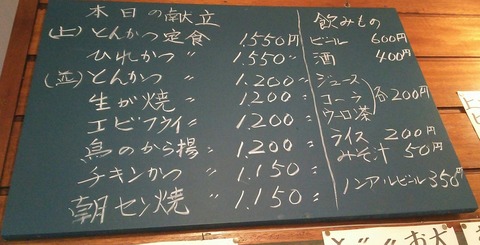 本日の献立
(上)とんかつ定食 1.550円
ひれかつ 〃 1.550〃
(並)とんかつ 〃 1.200〃
生が焼 〃 1.200〃
エビフライ〃 1.200〃
鳥のから揚〃 1.200〃
チキンかつ 〃 1.150〃
朝セン焼 〃 1.150〃
飲みもの
ビール 600円
酒 400円
ジュース
コーラ 各200円
ウーロ茶
ライス 200円
みそ汁 50円
ノンアルビール350円